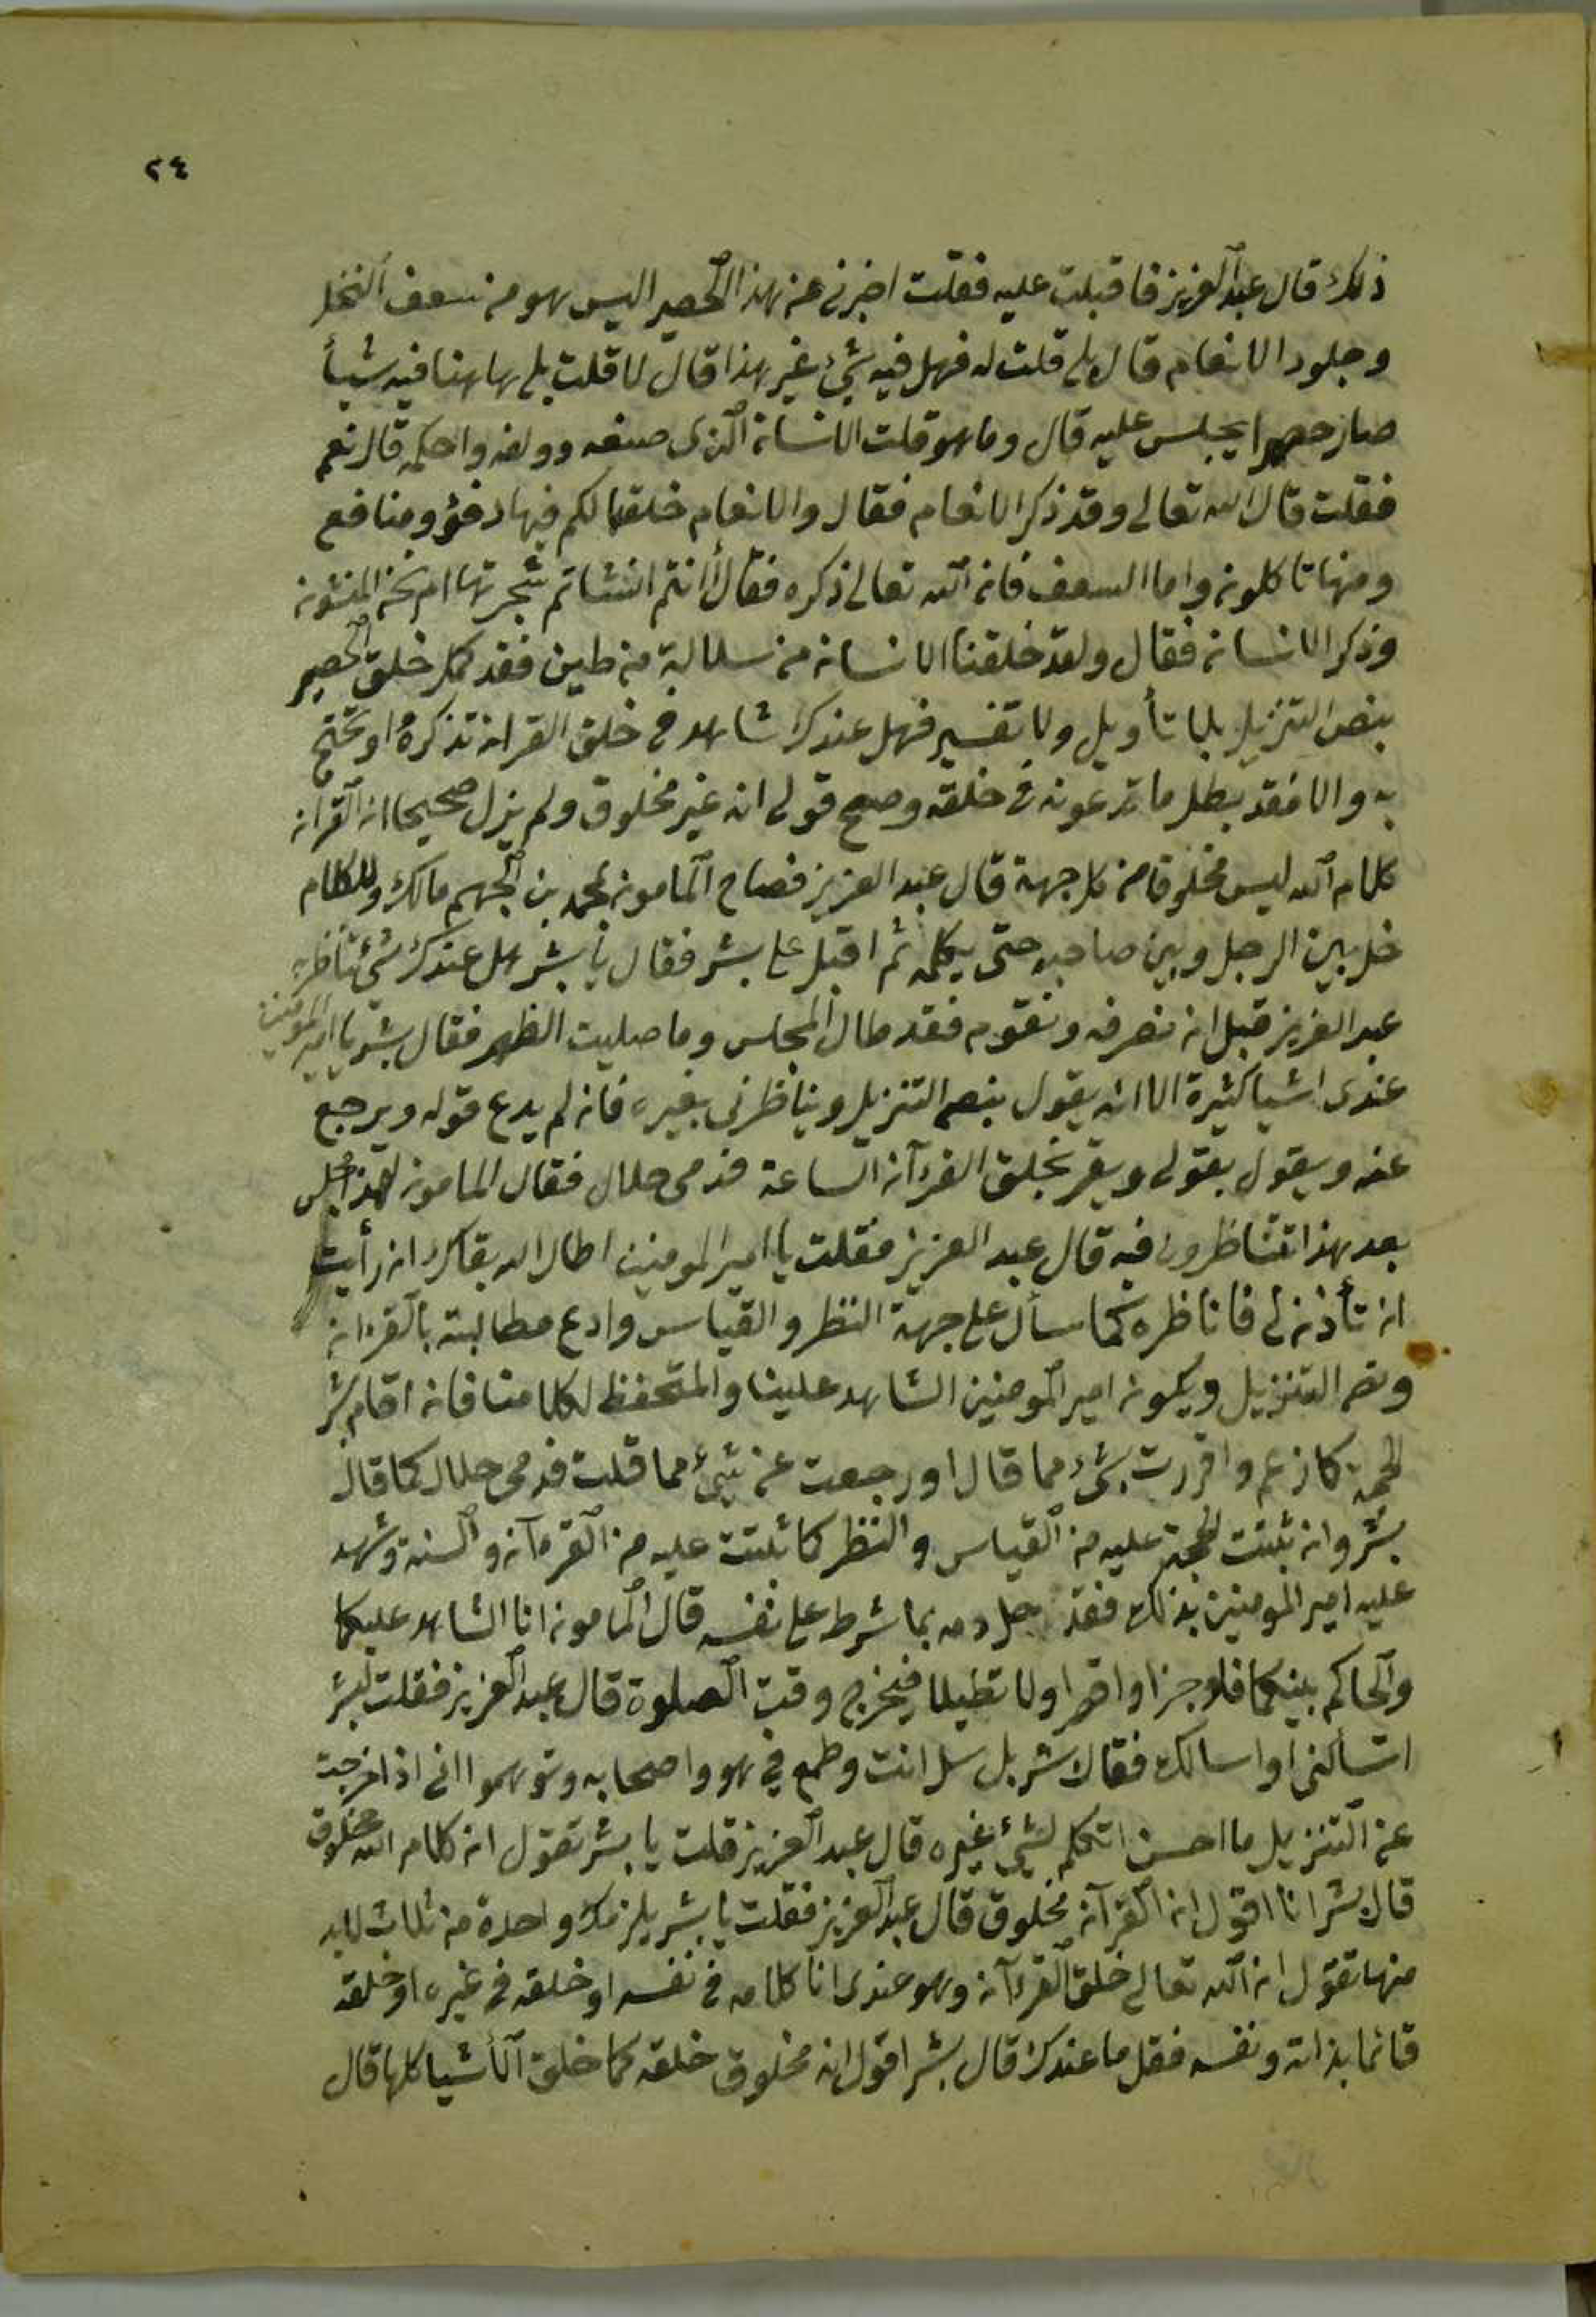 ٢٤
ذلك قال عبد العزيز فاقبلت عليه فقلت اخبرني عن هذا الحصير اليس هو من سعف النخل
وجلود الانعام قال بلى قلت له فهل فيه شئ غير هذا قال لا قلت بلى هاهنا فيه شيأ
صار حصيرا يجلس عليه قال وما هو قلت الانسان الذى صنعه وولفه واحكمه قال نعم
فقلت قال الله تعالى وقد ذكر الانعام فقال والانعام خلقها لكم فيها دفؤ ومنافع
ومنها تاكلون واما السعف فان الله تعالى ذكره فقال أانتم انشاتم شجرتها ام نحن المنشؤن
وذكر الانسان فقال ولقد خلقنا الانسان من سلالة من طين فقد كمل خلق الحصير
بنص التنزيل بلا تأويل ولا تفسير فهل عندك شاهد في خلق القران تذكره او تحتج
به والا فقد بطل ما تدعونه في خلقه وصح قولى انه غير مخلوق ولم يزل صحيحا ان القران
كلام الله ليس مخلوقا من كل جهة قال عبد العزيز فصاح المامون بمحمد بن الجهم مالك وللكلام
خل بين الرجل وبين صاحبه حتى يكلمه ثم اقبل على بشر فقال يا بشر هل عندك شئ تناظر به
عبد العزيز قبل ان نصرفه ونقوم فقد طال المجلس وما صليت الظهر فقال بشر يا امير المومنين
عندى اشيا كثيرة الا انه يقول بنص التنزيل ويناظرنى بغيره فان لم يدع قوله ويرجع
عنه ويقول بقولى ويقر بخلق القرآن الساعة فدمى حلال فقال المامون لهذا مجلس
بعد هذا تتناظرون فيه قال عبد العزيز فقلت يا امير المومنين اطال الله بقاك ان رأيت
ان تأذن لى فاناظره كما سأل على جهة النظر والقياس وادع مطالبته بالقران
ونص التنزيل ويكون امير المومنين الشاهد علينا والمتحفظ لكلامنا فان اقام بشر
الحجة كما زعم واقررت بشئ مما قال او رجعت عن شيئ مما قلت فدمى حلال كما قال
بشر وان ثبتت الحجة عليه من القياس والنظر كما ثبتت عليه من القرءآن والسنة وشهد
عليه امير المومنين بذلك فقد حل دمه بما شرط على نفسه قال المامون انا الشاهد عليكما
والحاكم بينكما فاوجزا واقصرا ولا تطيلا فيخرج وقت الصلوة قال عبد العزيز فقلت لبشر
اتسألنى او اسالك فقال بشر بل سل انت وطمع في هو واصحابه وتوهموا انى اذا خرجت
عن التنزيل ما احسن اتكلم بشئ غيره قال عبد العزيز قلت يا بشر تقول ان كلام الله مخلوق
قال بشر انا اقول ان القرآن مخلوق قال عبد العزيز فقلت يا بشر يلزمك واحدة من ثلاث لابد
منها تقول ان الله تعالى خلق القرءآن وهو عندى انا كلامه في نفسه او خلقه في غيره او خلقه
قائما بذاته ونفسه فقل ما عندك قال بشر اقول انه مخلوق خلقه كما خلق الأشيا كلها قال